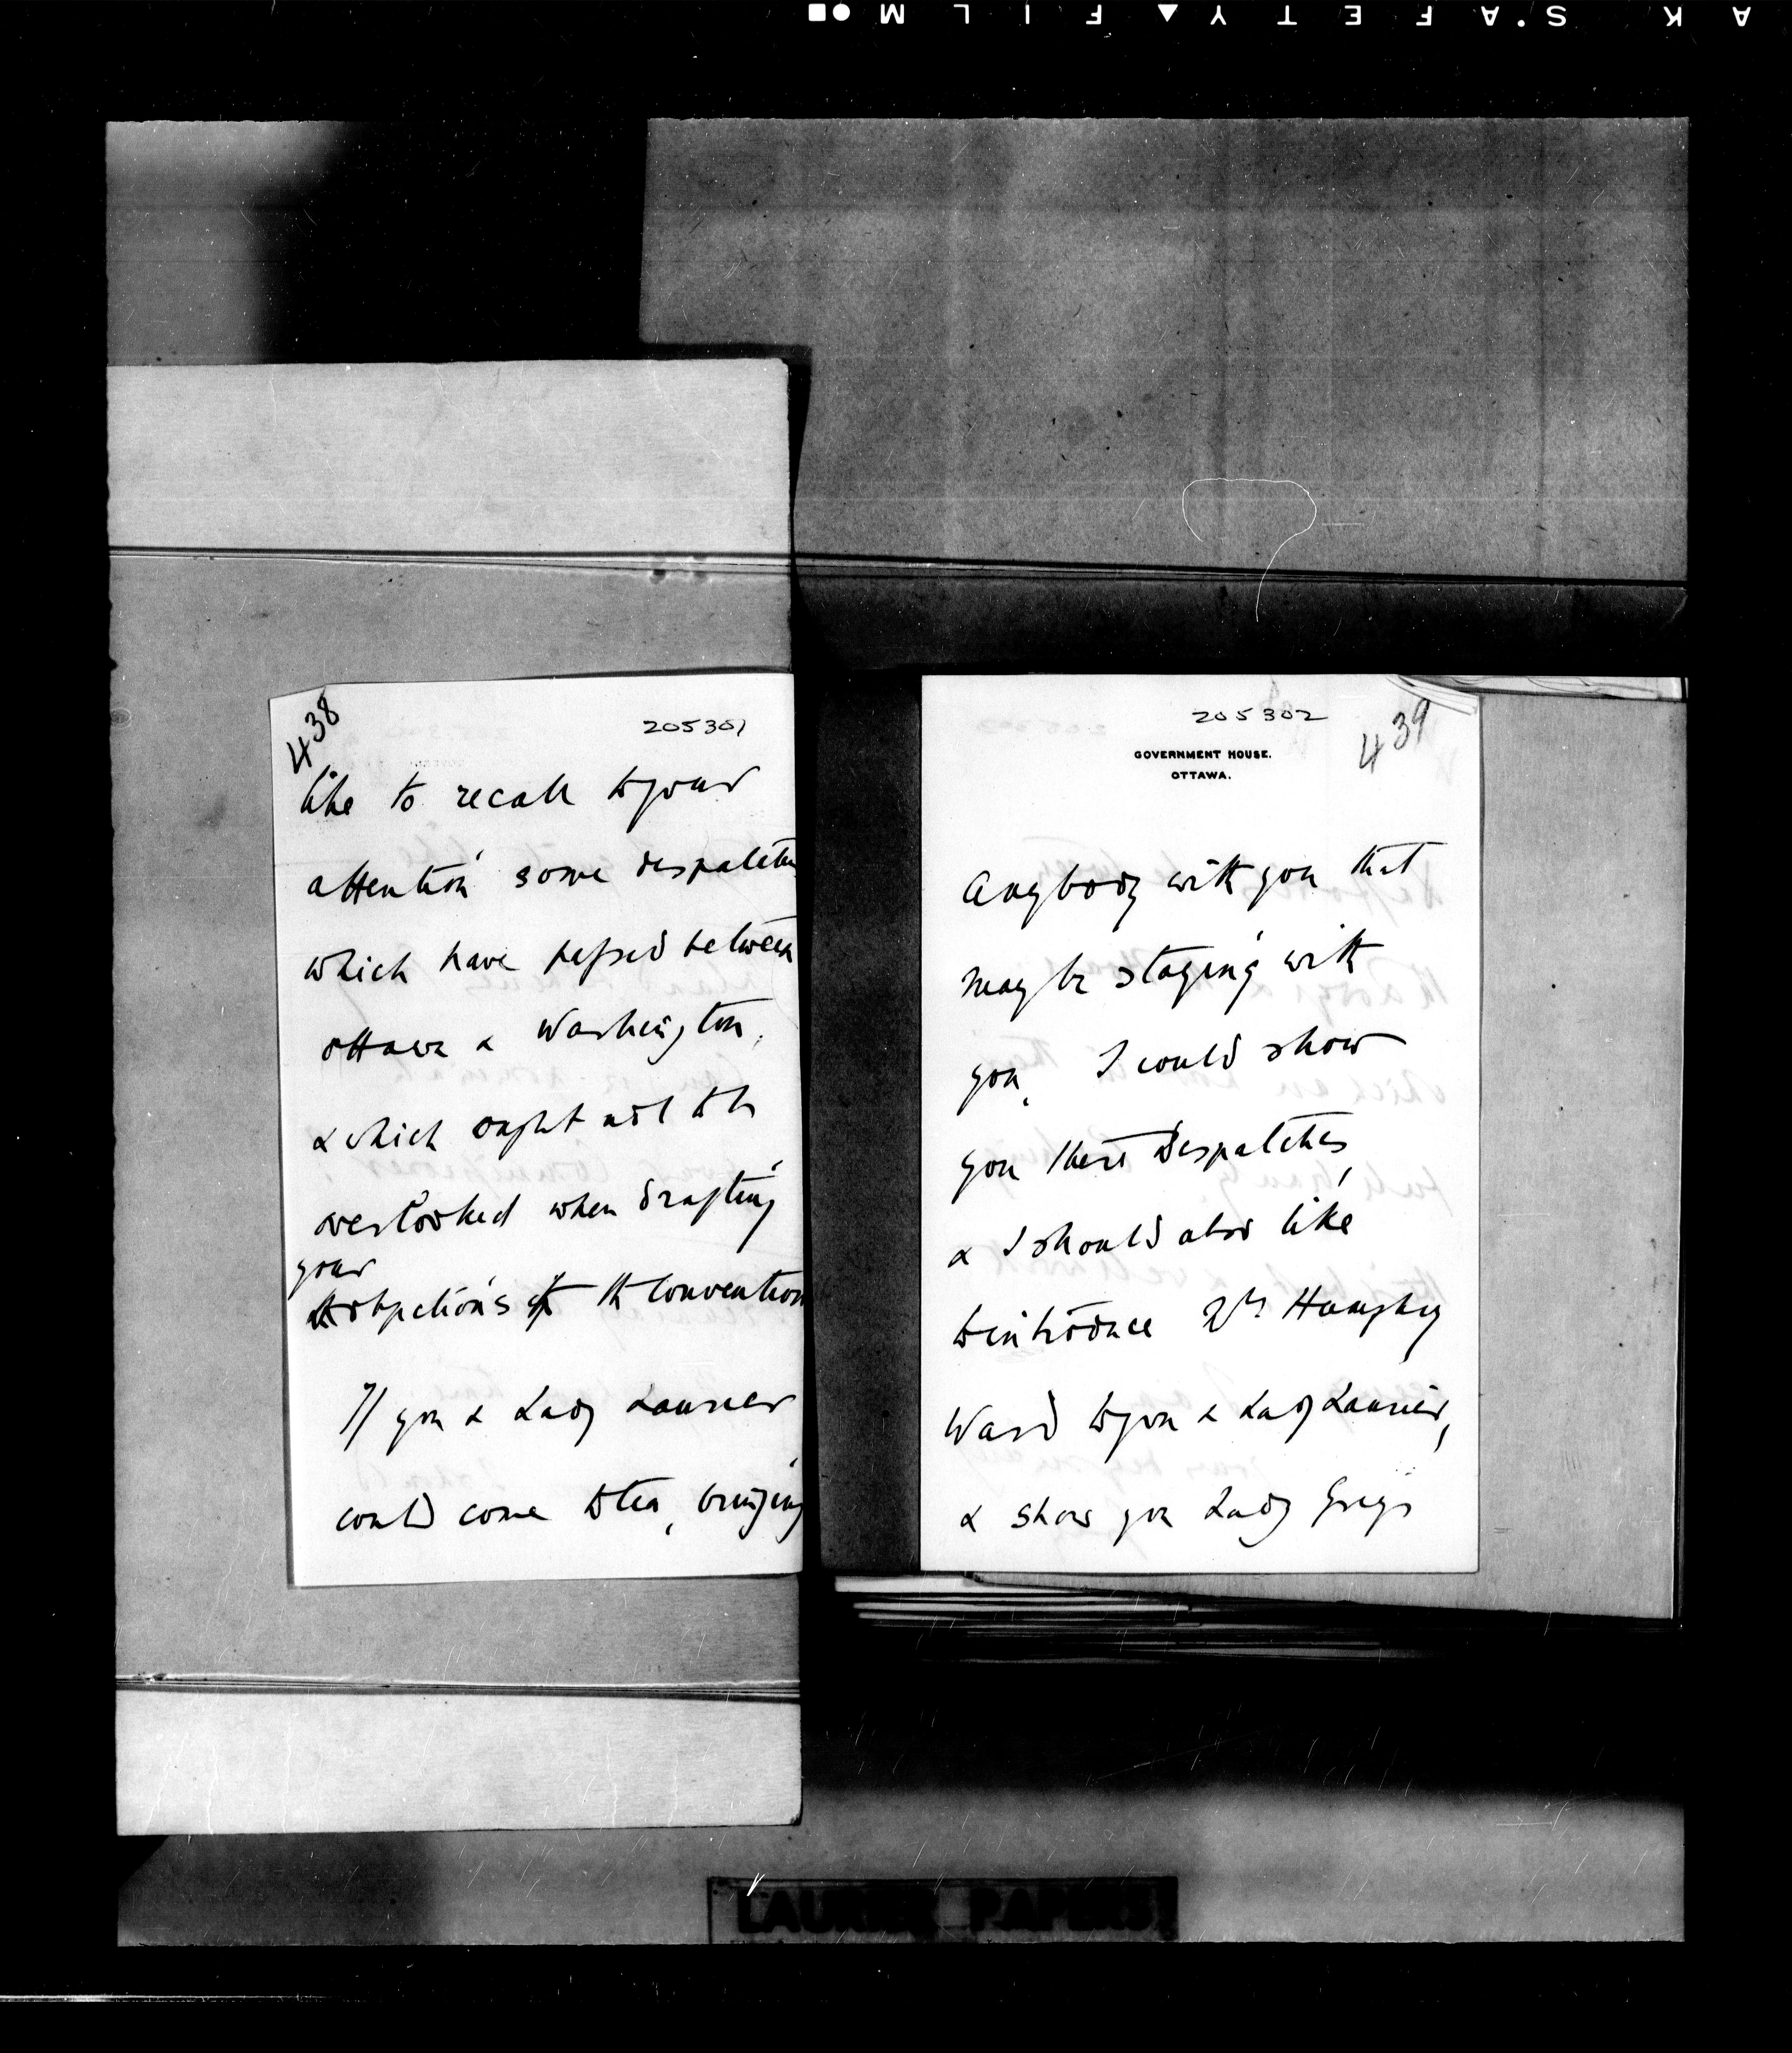 AK SAFETY FILM
438
205301
like to recall to your
attention some despatches
which have passed between
Ottawa & Washington,
& which ought not to be
overlooked when drafting
your
objections to the Convention
If you & Lady Laurier
could come to tea, bringing
205302
439
GOVERNMENT HOUSE.
OTTAWA.
Anybody with you that
may be staying with
you, I could show
you these Despatches,
& I should also like
to introduce Mrs Humphry
Ward to you & Lady Laurier,
& show you Lady Grey's
LAURIER PAPERS